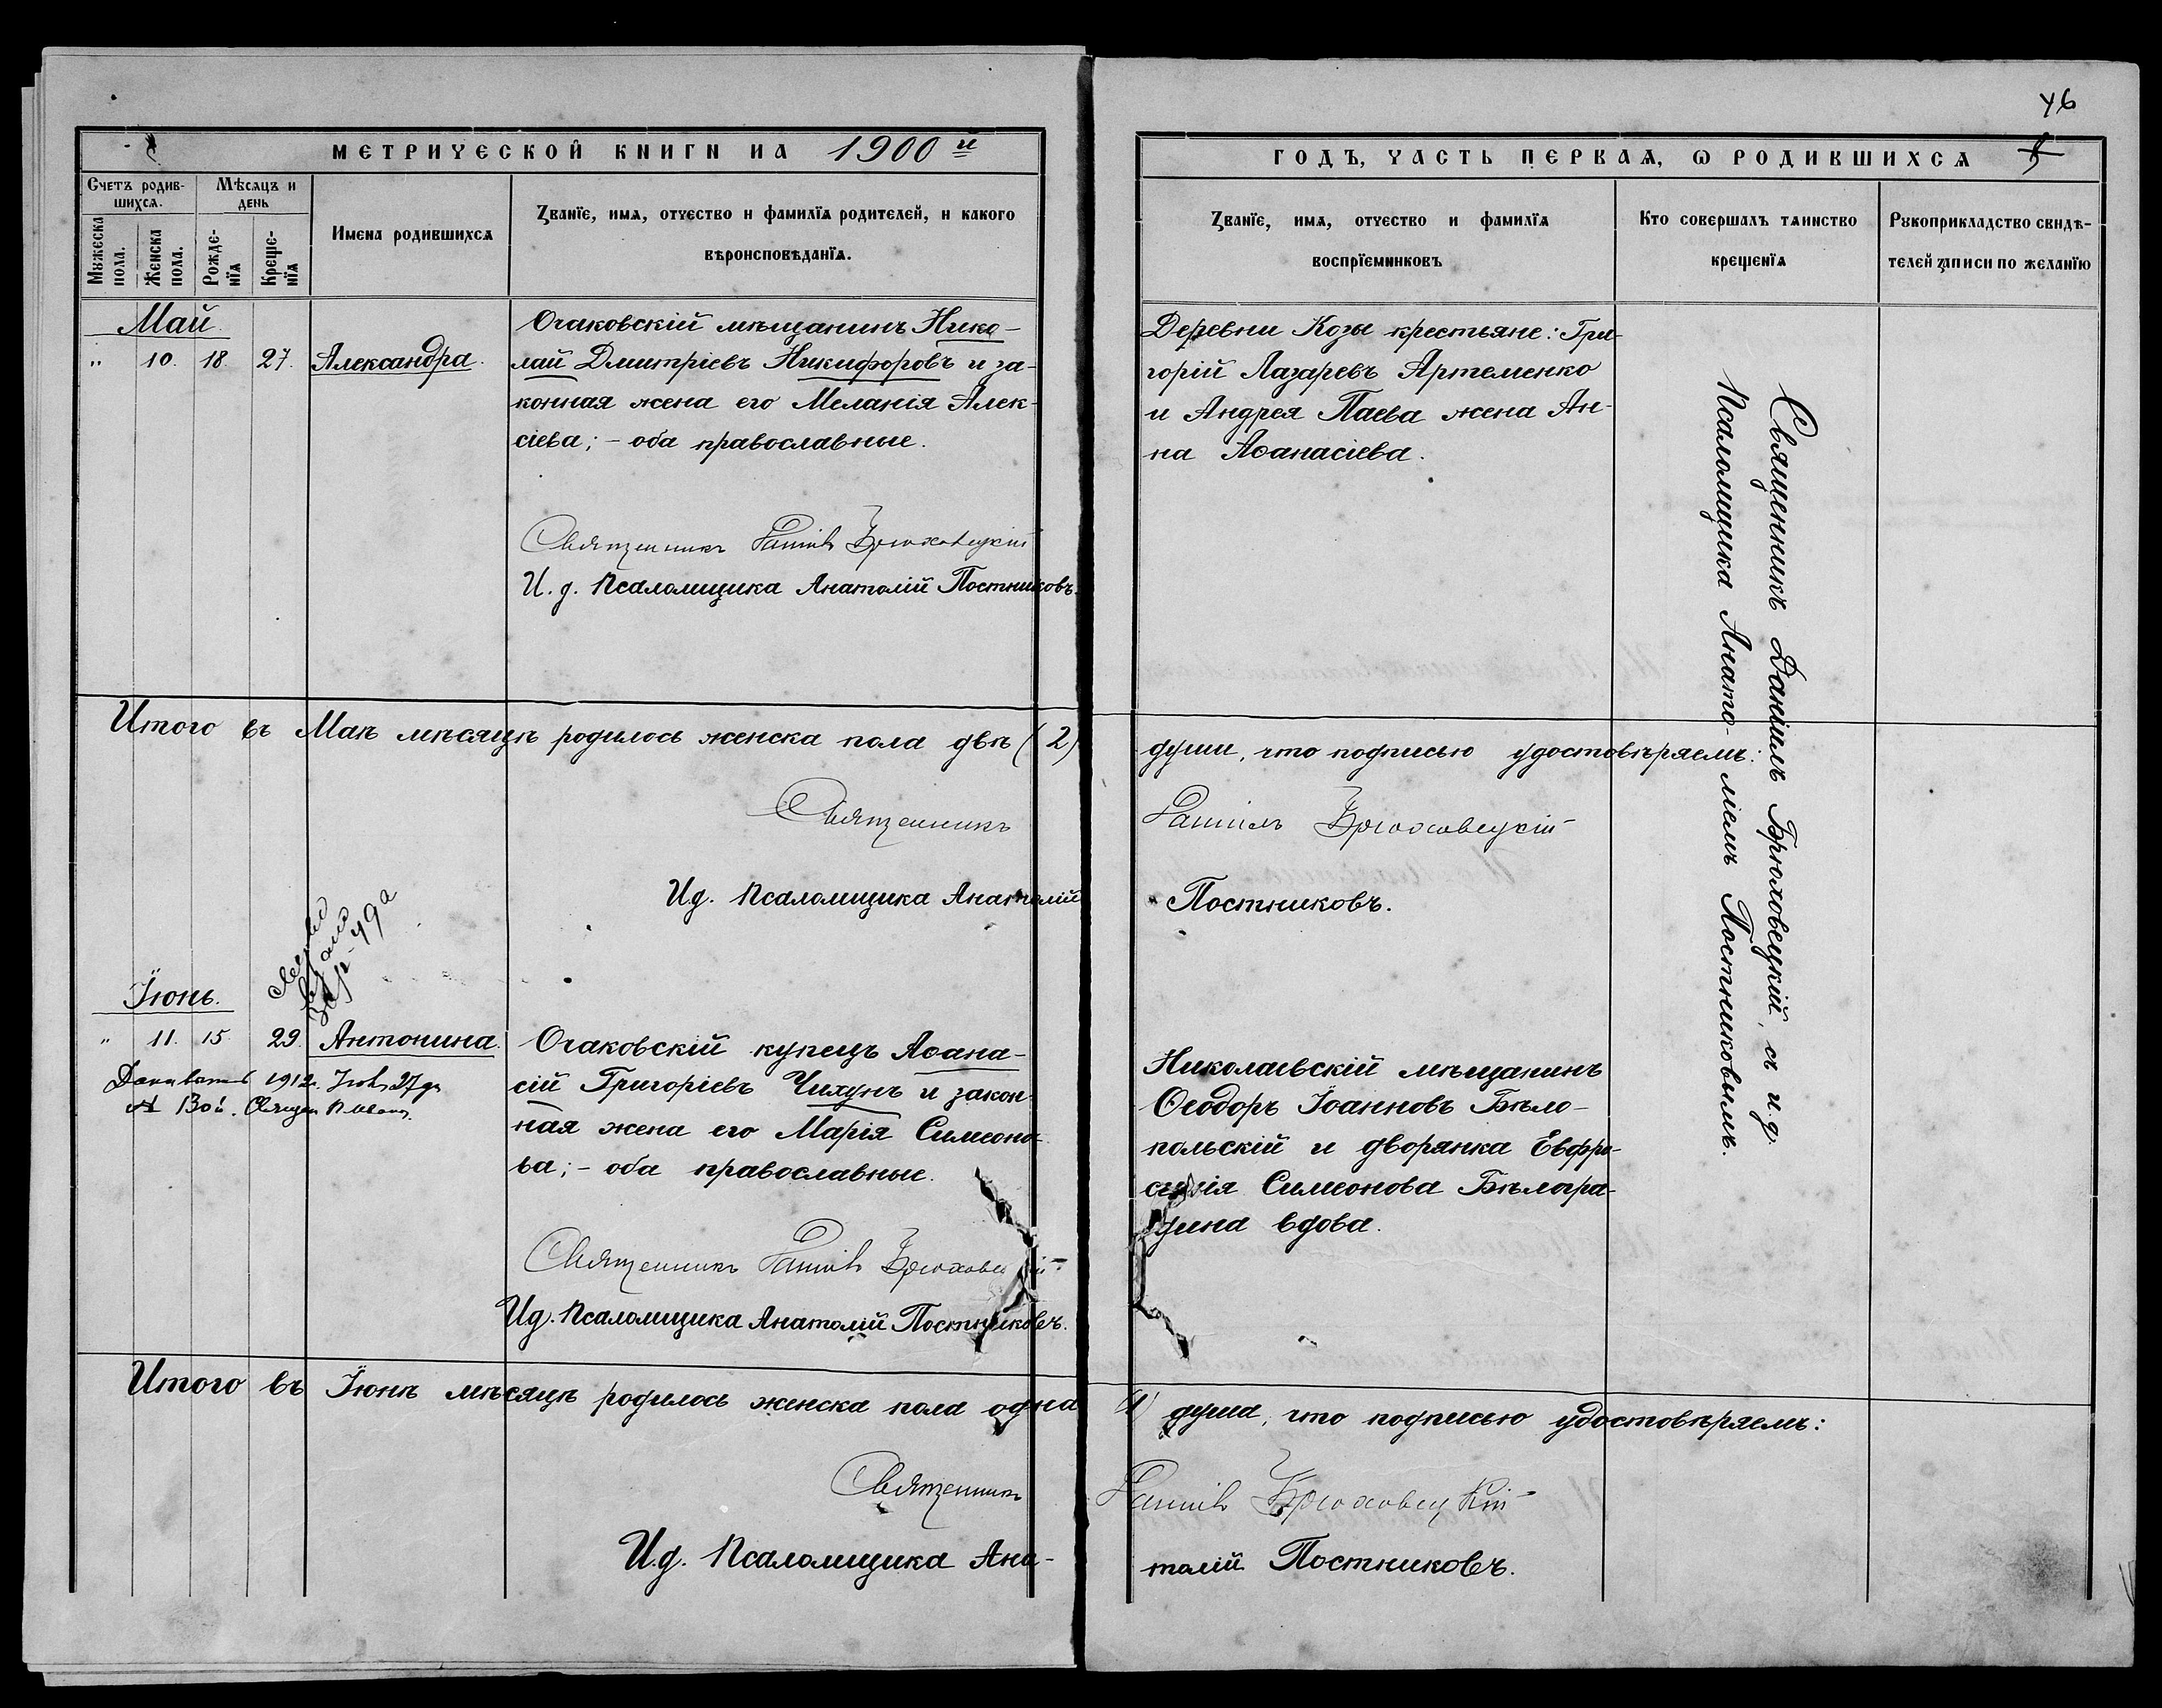 46
МЕТРИЧЕСКОЙ КНИГИ НА 1900й
ГОДЪ, ЧАСТЬ ПЕРВАЯ, Ѡ РОДИВШИХСЯ
Счетъ родив-
шихся.
Мѣсяцъ и
день
Мужеска
пола.
Женска
пола.
Рожде-
нїя
Креще-
нїя
Имена родившихся
Званїе, имя, отчество и фамилїя родителей, и какого
вѣроисповѣданїя.
Званїе, имя, отчество и фамилїя
воспрїемниковъ
Кто совершалъ таинство
крещенїя
Рукоприкладство свидѣ-
телей записи по желанїю
Май
„ 10. 18. 27. Александра.
Очаковскій мѣщанинъ Нико-
лай Дмитріевъ Никифоровъ и за-
конная жена его Меланія Алек-
сіева; – оба православные.
Священникъ Даніилъ Брюховецкій
И. д. Псаломщика Анатолій Постниковъ.
Деревни Козы крестьяне: Гри-
горій Лазаревъ Артеменко
и Андрея Паева жена Ан-
на Аѳанасіева.
Священникъ Даніилъ Брюховецкій, съ и. д.
Псаломщика Анато-ліемъ Постниковымъ.
Итого въ Маѣ мѣсяцѣ родилось женска пола двѣ (2)
души, что подписью удостовѣряемъ:
Священникъ
Даніилъ Брюховецкій
И.д. Псаломщика Анатолій
Постниковъ.
Іюнь.
„ 11. 15. 29. Антонина.
1912г.
Очаковскій купецъ Аѳана-
сій Григоріевъ Чихунъ и закон-
ная жена его Марія Симеоно-
ва; – оба православные.
Священникъ Даніилъ Брюховецкій
И.д. Псаломщика Анатолій Постниковъ.
Николаевскій мѣщанинъ
Ѳеодоръ Іоанновъ Бѣло-
польскій и дворянка Евфро-
синія Симеонова Бѣлогра-
дина вдова.
Итого въ Іюнѣ мѣсяцѣ родилось женска пола одна
(1) душа, что подписью удостовѣряемъ:
Священникъ
Даніилъ Брюховецкій
И.д. Псаломщика Ана-
толій Постниковъ.